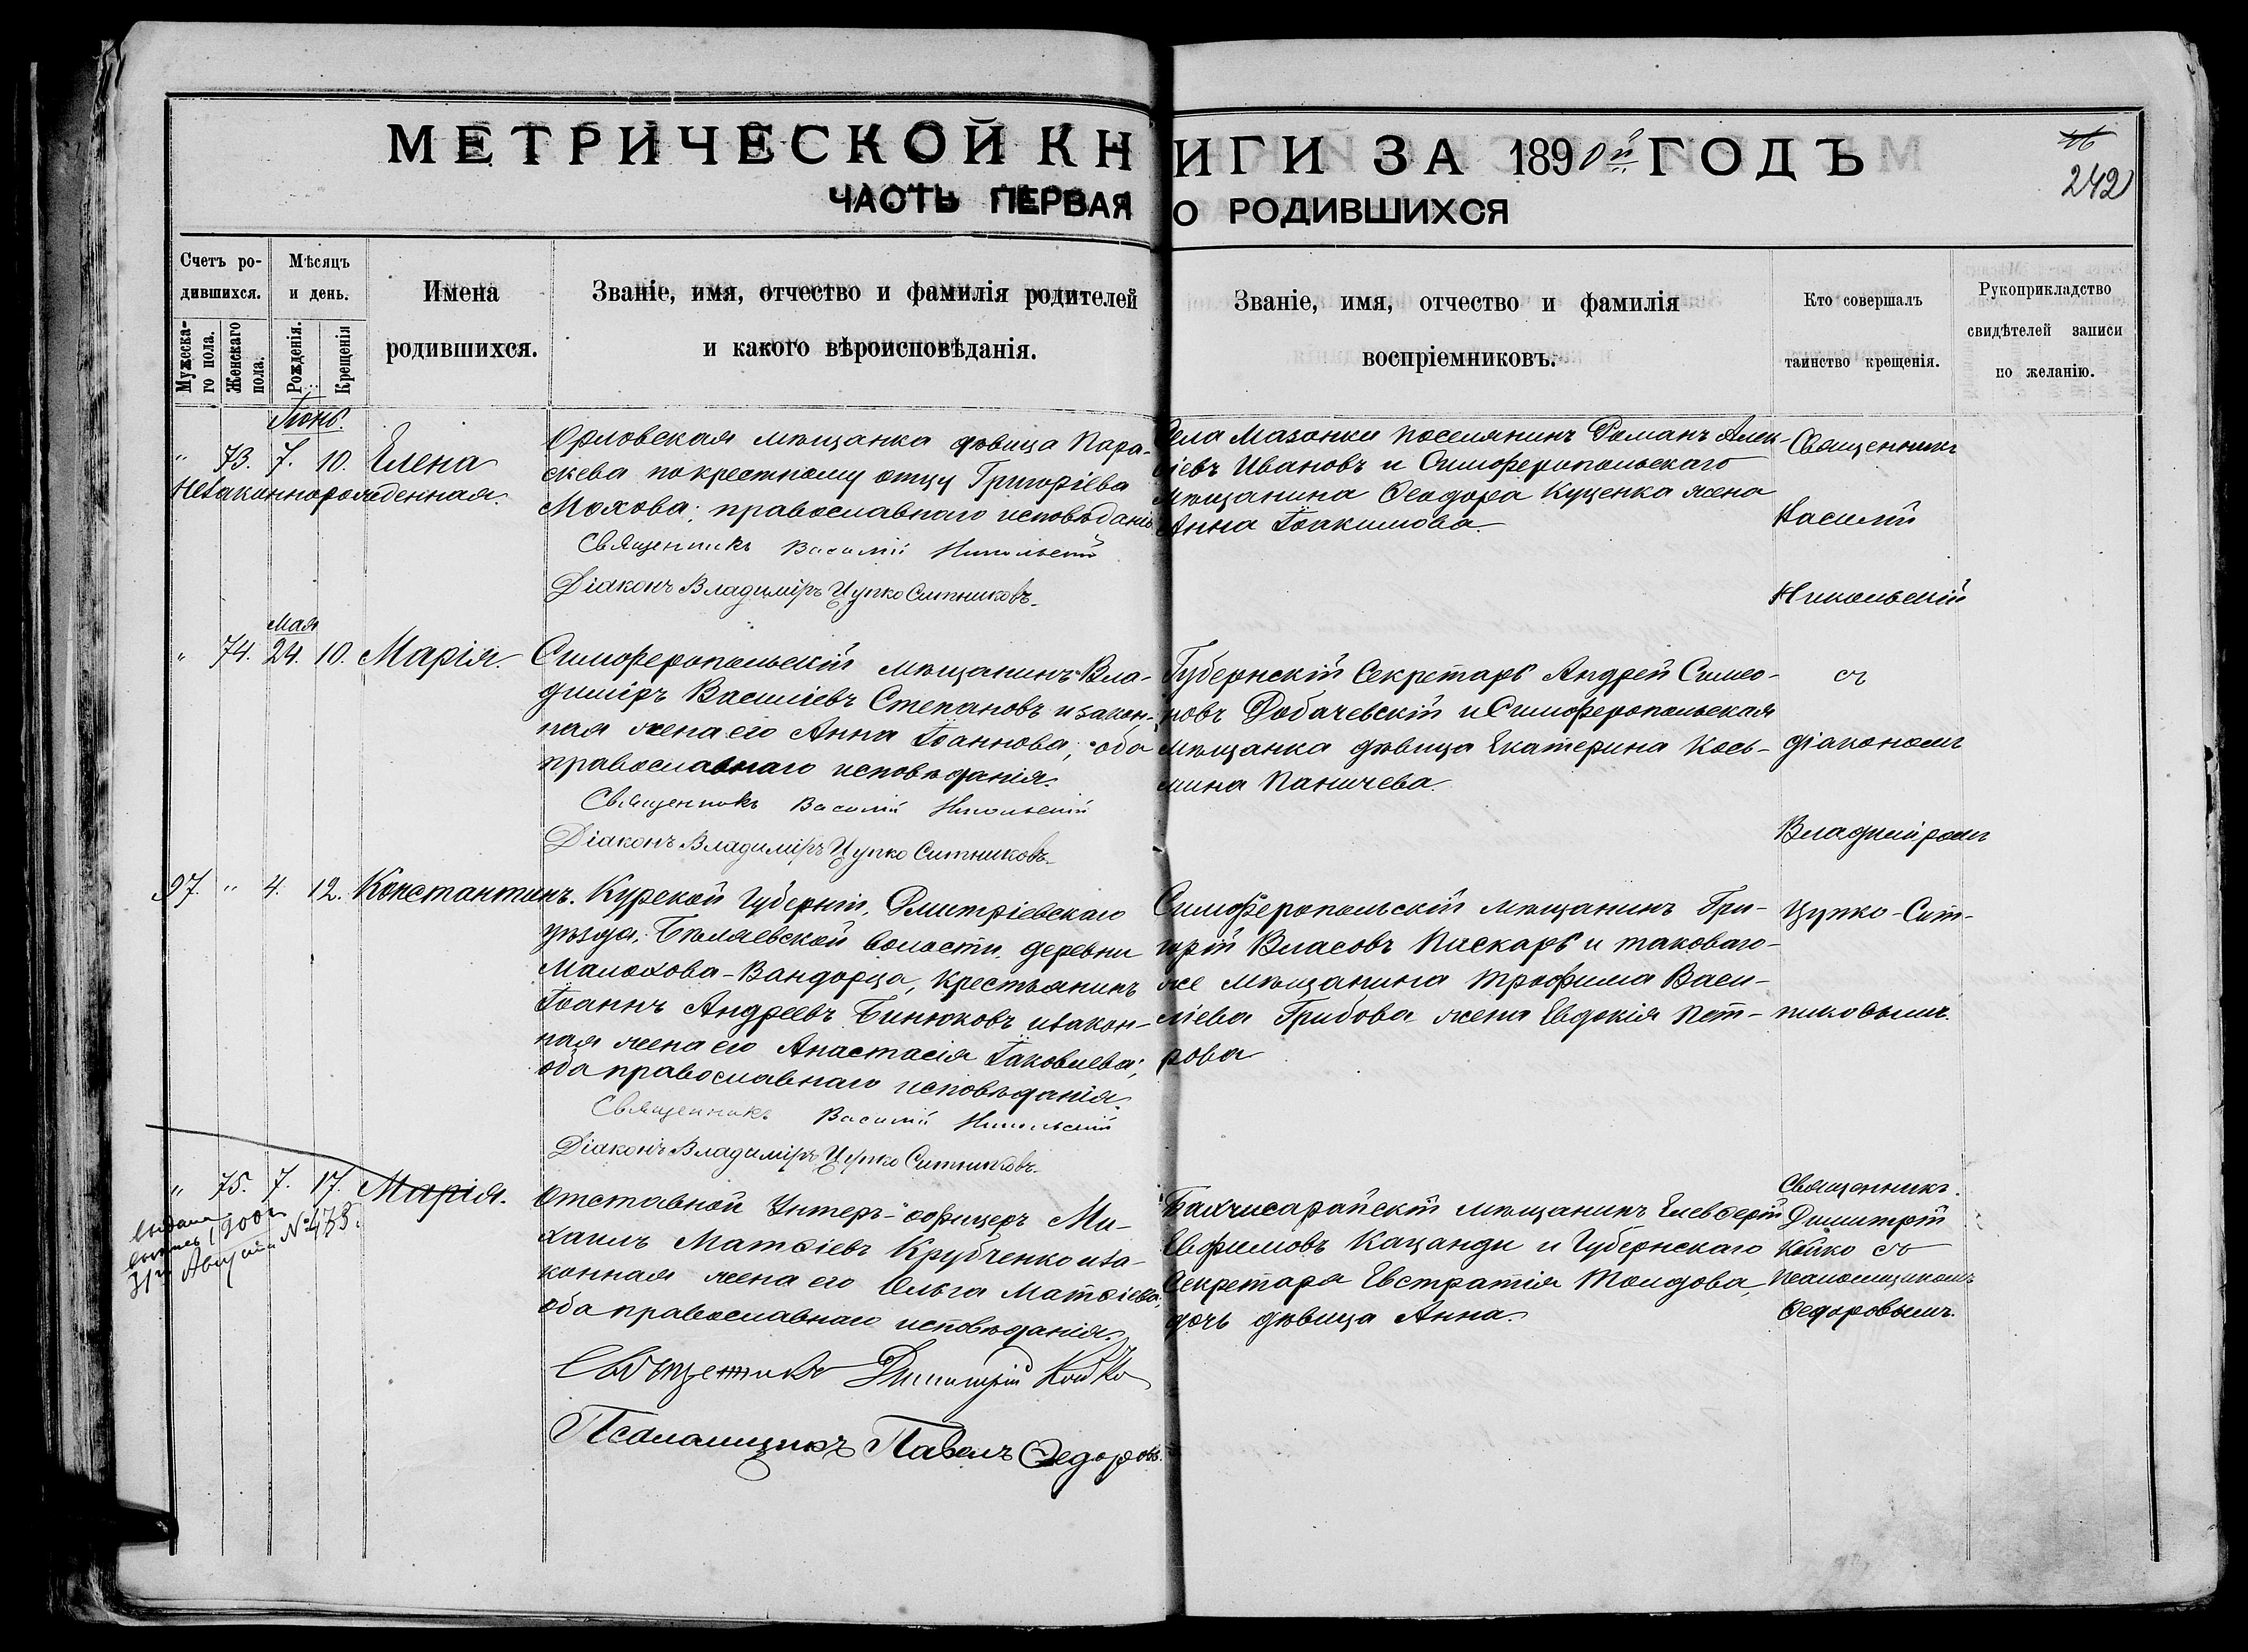 МЕТРИЧЕСКОЙ КНИГИ ЗА 1890й ГОДЪ
46
242
ЧАСТЬ ПЕРВАЯ О РОДИВШИХСЯ
Счетъ ро-
дившихся.
Мужеска-
го пола.
Женскаго
пола.
Мѣсяцъ
и день.
Рожденія.
Крещенія
Имена
родившихся.
Званіе, имя, отчество и фамилія родителей
и какого вѣроисповѣданія.
Званіе, имя, отчество и фамилія
воспріемниковъ.
Кто совершалъ
таинство крещенія.
Рукоприкладство
свидѣтелей записи
по желанію.
Іюнь.
" 73. 7. 10. Елена
Незаконнорожденная.
Орловская мѣщанка дѣвица Пара-
скева по крестному отцу Григоріева
Мохова; православнаго исповѣданія
Священникъ Василій Никольскій
Діаконъ Владиміръ Цупко Ситниковъ.
Села Мазонки поселянинъ Романъ Алек-
сіевъ Ивановъ и Симферопольскаго
мѣщанина Ѳеодора Куценка жена
Анна Іоакимова
Священникъ
Василій
Никольскій
Мая
" 74. 24. 10. Марія.
Симферопольскій мѣщанинъ Вла-
диміръ Василіевъ Степановъ и закон-
ная жена его Анна Іоаннова; оба
православнаго исповѣданія.
Священникъ Василій Никольскій
Діаконъ Владиміръ Цупко Ситниковъ.
Губернскій Секретарь Андрей Симео-
новъ Добачевскій и Симферопольская
мѣщанка дѣвица Екатерина Кось-
мина Паничева.
съ
діакономъ
Владиміромъ
97. " 4. 12. Константинъ.
Курской Губерніи, Дмитріевскаго
уѣзда, Бѣляевской волости, деревни
Малохова-Вандорца, крестьянинъ
Іоаннъ Андреевъ Бинюковъ и закон-
ная жена его Анастасія Іаковлева;
оба православнаго исповѣданія.
Священникъ Василій Никольскій
Діаконъ Владиміръ Цупко Ситниковъ.
Симферопольскій мѣщанинъ Гри-
горій Власовъ Паскарь и таковаго-
же мѣщанина Трофима Васи-
ліева Грибова жена Евдокія Пет-
рова
Цупко-Сит-
никовымъ.
" 75. 7. 17. Марія.
выдана
1900 г.
31го Августа № 473.
Отставной Унтеръ-офицеръ Ми-
хаилъ Матѳіевъ Крубченко и за-
конная жена его Ольга Матѳіева;
оба православнаго исповѣданія.
Священникъ Димитрій Койко
Псаломщикъ Павелъ Ѳедоровъ.
Бахчисарайскій мѣщанинъ Елевѳерій
Евфимовъ Кацанди и Губернскаго
Секретаря Евстратія Молдова,
дочь дѣвица Анна.
Священникъ.
Димитрій
Койко съ
Псаломщикомъ
Ѳедоровымъ.